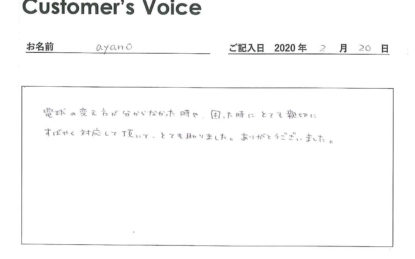 Customer's Voice
お名前 ayano ご記入日 2020 年 2 月 20 日
電球の変え方が分からなかった時や、困った時にとても親切に
すばやく対応して頂いて、とても助かりました。ありがとうございました。